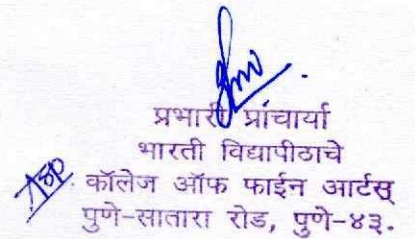 प्रभारी प्रांचार्या
भारती विद्यापीठाचे
कॉलेज ऑफ फाईन आर्टस्
पुणे-सातारा रोड, पुणे-४३.